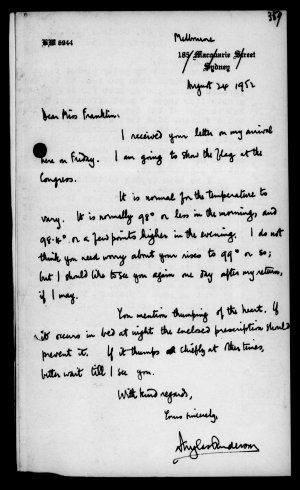 389
BW 8944
Melbourne
185 Macquarie Street
Sydney
August 24 1952
Dear Miss Franklin:
I received your letter on my arrival
here on Friday. I am going to show the flag at the
Congress.
It is normal for the temperature to
vary. It is normally 98° or less in the mornings, and
98.4° or a few points higher in the evening. I do not
think you need worry about your rises to 99° or so;
but I should like to see you again one day after my return,
if I may.
You mention thumping of the heart. If
it occurs in bed at night the enclosed prescription should
prevent it. If it thumps chiefly at other times,
better wait till I see you.
With kind regards,
Yours sincerely,